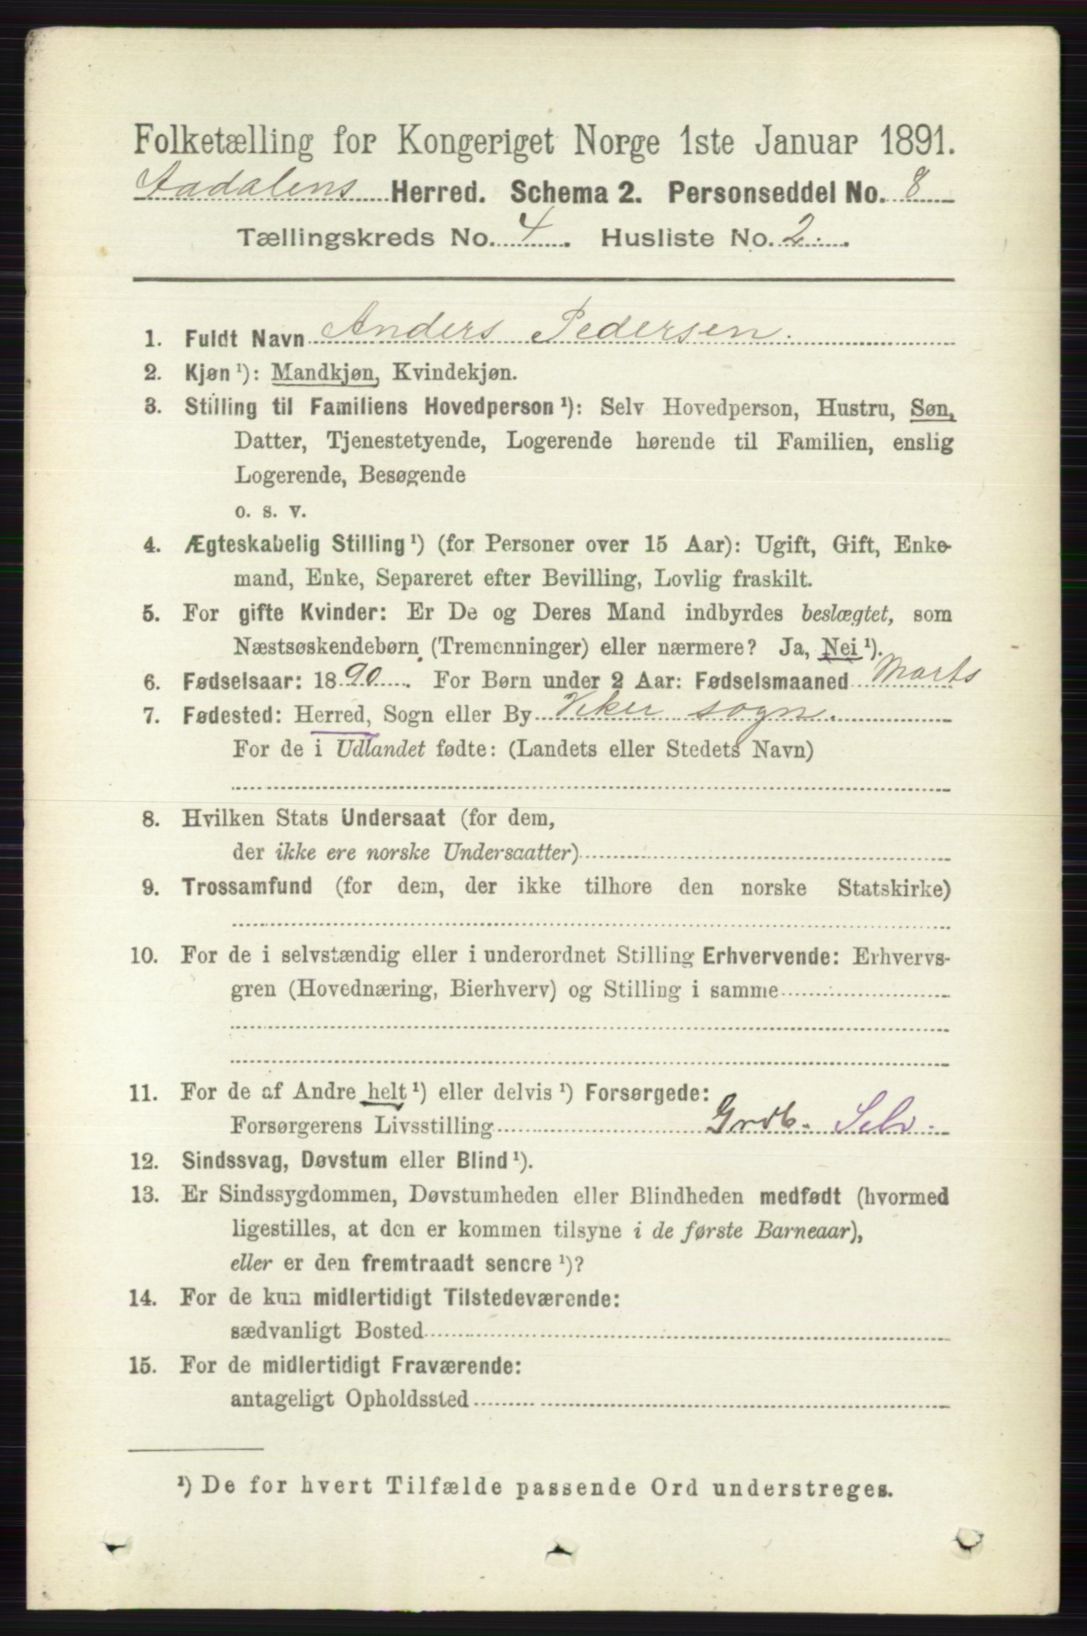 Folketælling for Kongeriget Norge 1ste Januar 1891.
Aadalens Herred. Schema 2. Personseddel No. 8
Tællingskreds No. 4. Husliste No. 2.
1. Fuldt Navn Anders Pedersen.
2. Kjøn ¹): Mandkjøn, Kvindekjøn.
3. Stilling til Familiens Hovedperson ¹): Selv Hovedperson, Hustru, Søn,
Datter, Tjenestetyende, Logerende hørende til Familien, enslig
Logerende, Besøgende
o. s. v.
4. Ægteskabelig Stilling ¹) (for Personer over 15 Aar): Ugift, Gift, Enke-
mand, Enke, Separeret efter Bevilling, Lovlig fraskilt.
5. For gifte Kvinder: Er De og Deres Mand indbyrdes beslægtet, som
Næstsøskendebørn (Tremenninger) eller nærmere? Ja, Nei ¹).
6. Fødselsaar: 1890. For Børn under 2 Aar: Fødselsmaaned Marts
7. Fødested: Herred, Sogn eller By Viker sogn.
For de i Udlandet fødte: (Landets eller Stedets Navn)
8. Hvilken Stats Undersaat (for dem,
der ikke ere norske Undersaatter)
9. Trossamfund (for dem, der ikke tilhore den norske Statskirke)
10. For de i selvstændig eller i underordnet Stilling Erhvervende: Erhvervs-
gren (Hovednæring, Bierhverv) og Stilling i samme
11. For de af Andre helt ¹) eller delvis ¹) Forsørgede:
Forsørgerens Livsstilling Grdb. Selv.
12. Sindssvag, Døvstum eller Blind ¹).
13. Er Sindssygdommen, Døvstumheden eller Blindheden medfødt (hvormed
ligestilles, at den er kommen tilsyne i de første Barneaar),
eller er den fremtraadt senere ¹)?
14. For de kun midlertidigt Tilstedeværende:
sædvanligt Bosted
15. For de midlertidigt Fraværende:
antageligt Opholdssted
¹) De for hvert Tilfælde passende Ord understreges.